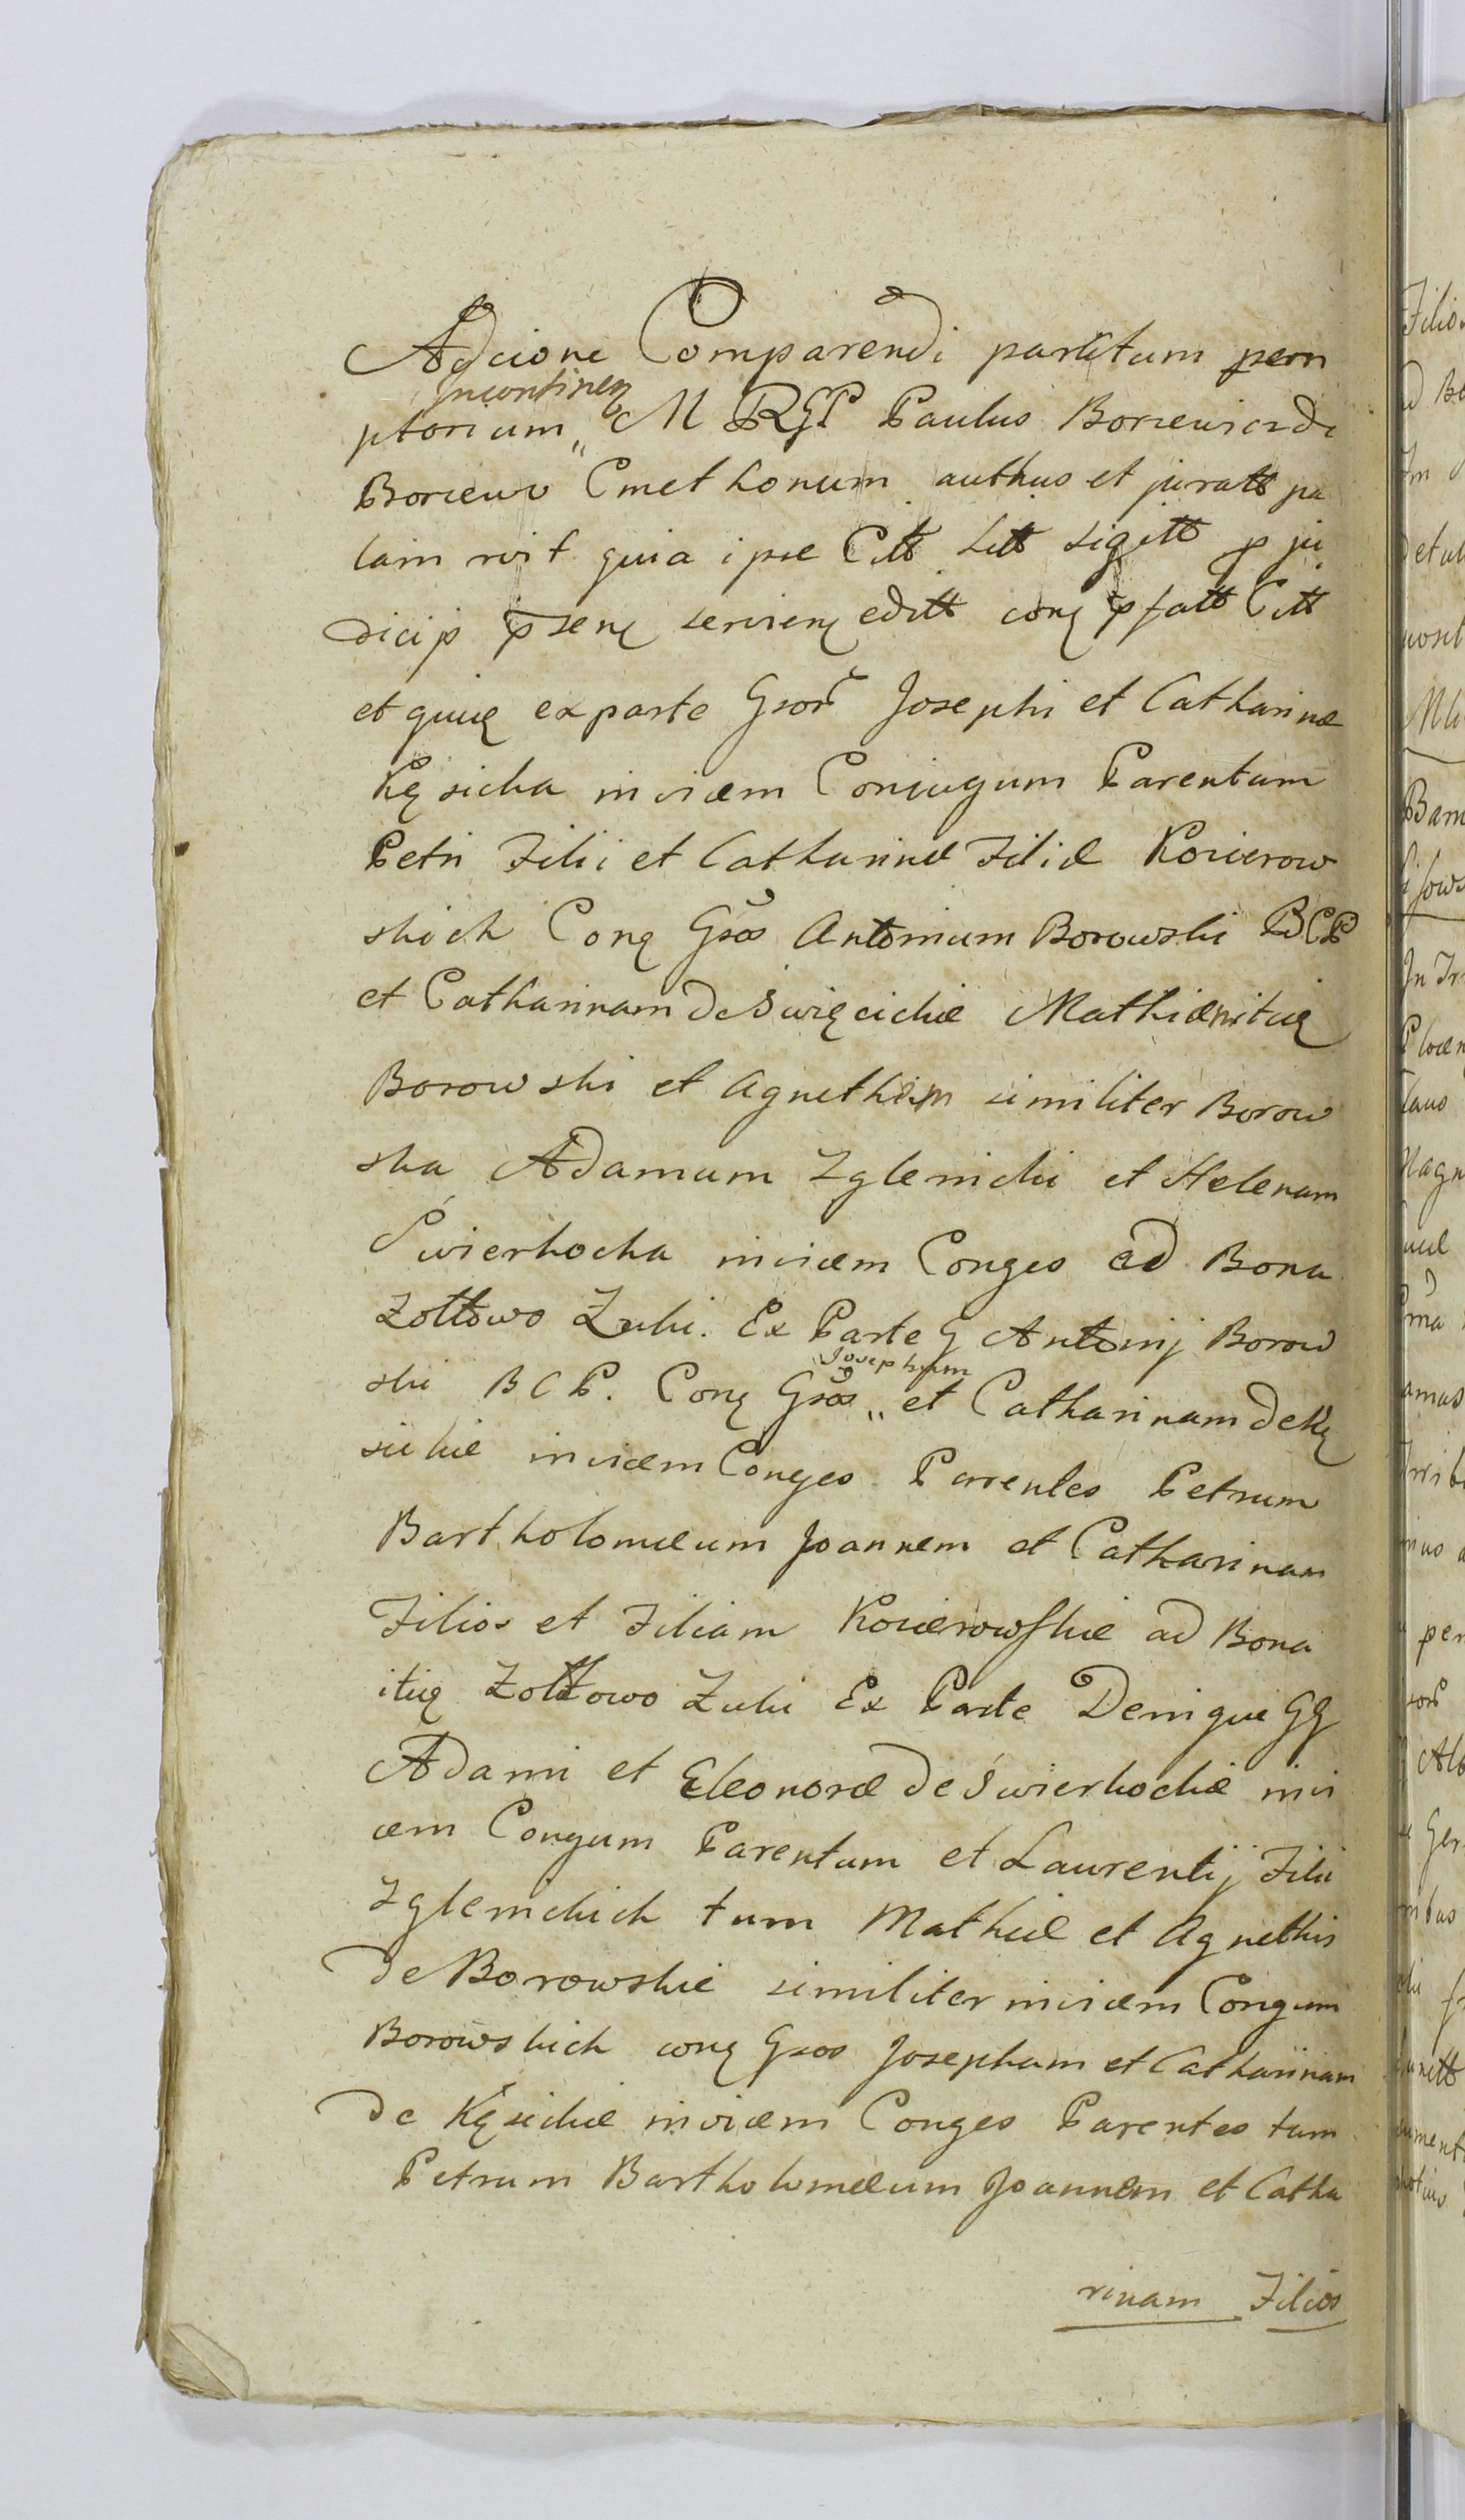 Adcione Comparendi partitum pern
Incontinen
ptorium „ M RGP Paulus Borzewicz de
Borzewo Cmethonum authus et juratt pa
lam roit quia ipse Citt Litt Sigitt p ju
dicip psenę servienę editt conę pfatt Citt
et quię ex parte Gsor Josephi et Catharinæ
Kęsicka invicem Conjugum Parentum
Petri Filii et Catharinæ Filiæ Kozierow
skich Conę Gsos Antonium Borowski BCP
et Catharinam de Swięcickie Mathiam itię
Borowski et Agnetham similiter Borow
ska Adamum Zglenicki et Helenam
Świerkocka invicem Conges ad Bona
Zołtowo Zuki. Ex Parte G Antonij Borow
Josephum
ski BCP. Conę Gsos „ et Catharinam de Kę
sickie invicem Conges Parentes Petrum
Bartholomæum Joannem et Catharinam
Filios et Filiam Kozierowskie ad Bona
itię Zołtowo Zuki Ex Parte Denique GG
Adami et Eleonoræ de Świerkockie invi
cem Congum Parentum et Laurentij Filii
Zglenickich tum Mathiæ et Agnethis
de Borowskie similiter invicem Congum
Borowskich conę Gsos Josephum et Catharinam
de Kęsickie invicem Conges Parentes tum
Petrum Bartholomæum Joannem et Catha
rinam Filios